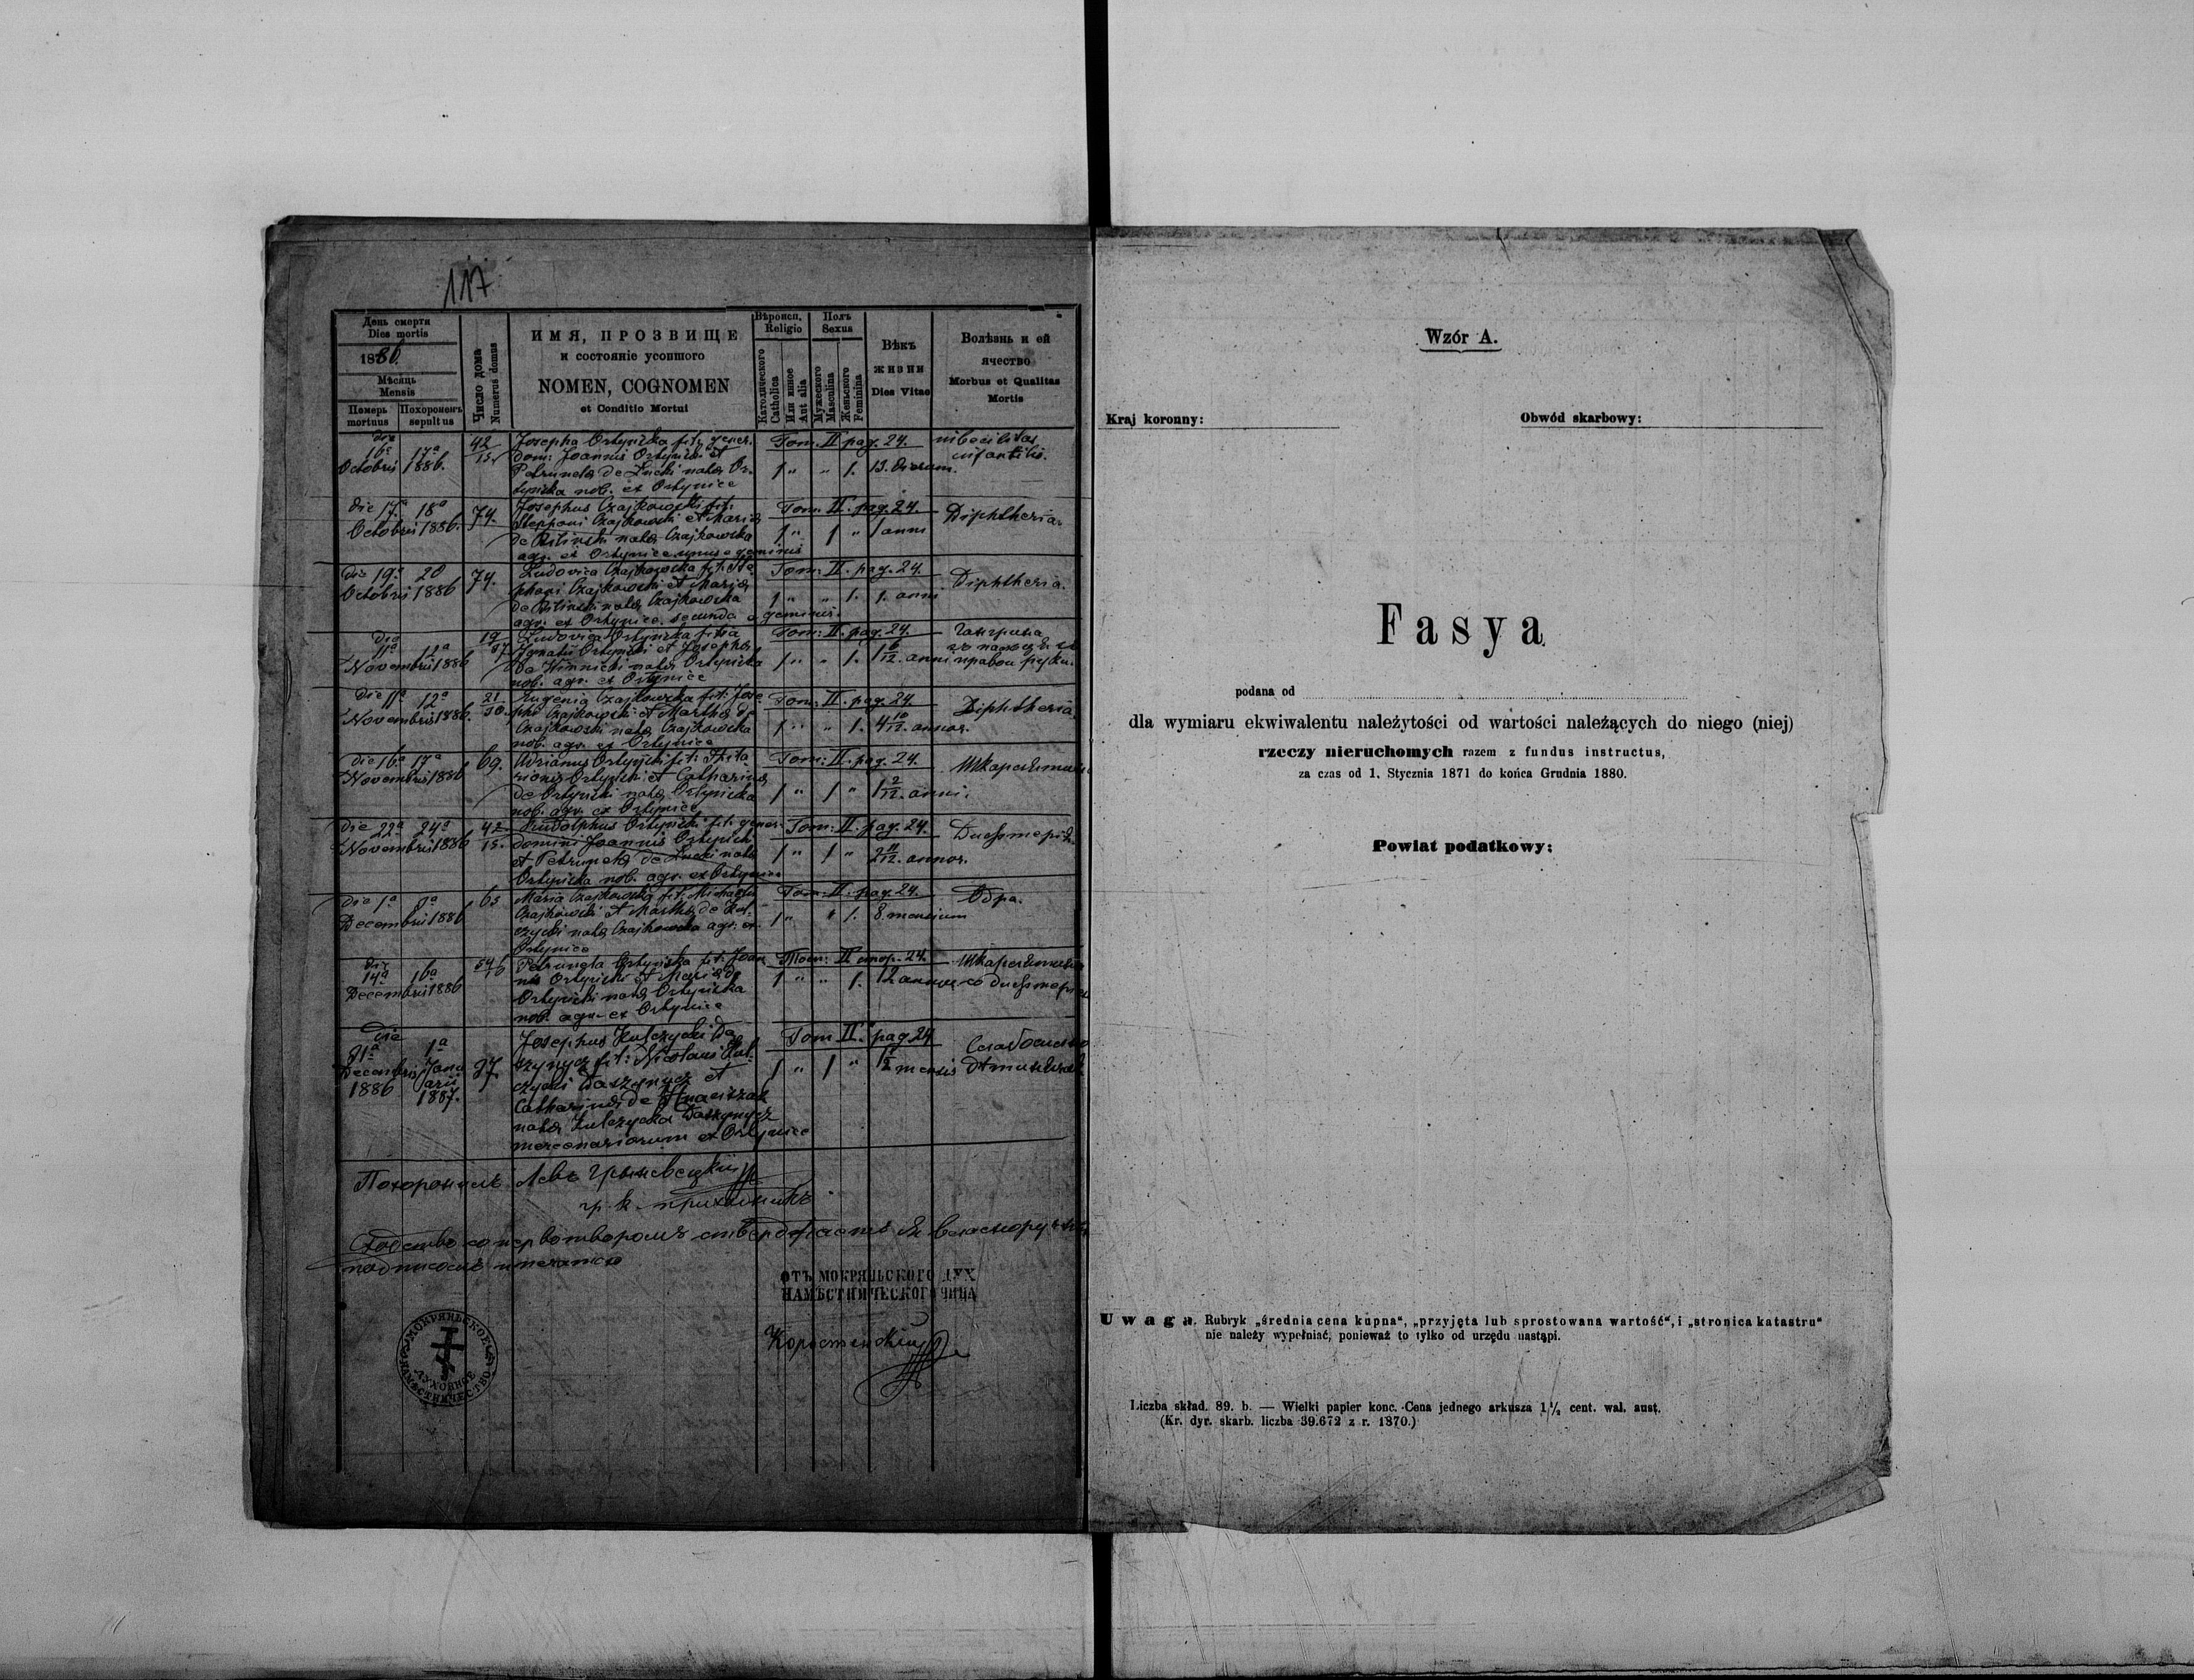 117
День смерти
Dies mortis
1886.
Мѣсяць
Mensis
Померъ
mortuus
Похороненъ
sepultus
Число дома
Numerus domus
ИМЯ, ПРОЗВИЩЕ
и состояніе усопшого
NOMEN, COGNOMEN
et Conditio Mortui
Вѣроисп.
Religio
Католического
Catholica
Или инное
Aut alia
Полъ
Sexus
Мужеского
Masculina
Женьского
Feminina
Вѣкъ
жизни
Dies Vitae
Болѣзнь и ей
ячество
Morbus et Qualitas
Mortis
die 16a Octobris 17a 1886. 42/15.
Josepha Ortynska fil: gener.
dom: Joannis Ortynski et
Petrunela de Łucki nata Or-
tynska nob. ex Ortynice
Tom. II pag. 24.
1 " " 1. 13. dierum.
infantilis.
die 17a 18a Octobris 1886. 74.
Josephus Czajkowski fil:
Stephani Czajkowski et Maria
de Biliński nata Czajkowska
agr. ex Ortynice unus e geminis
Tom: II. pag. 24.
1 " 1 " 1 anni
Diphtheria.
die 19a 20 Octobris 1886 74.
Ludovica Czajkowska fil: Ste-
phani Czajkowski et Maria
de Biliński nata Czajkowska
agr. ex Ortynice. secunda e geminis.
Tom: II. pag. 24.
1 " " 1. 1. anni
Diphtheria.
die 11a 12a Novembris 1886 19/87
Ludovica Ortynska filia
Ignatii Ortynski et Josepha
de Winnicki nata Ortynska
nob. agr. ex Ortynice
Tom: II. pag. 24.
1 " " 1. 1 6/12. anni
die 11a 12a Novembris 1886. 21/30.
Eugenia Czajkowska fil: Jose-
phi Czajkowski et Martha de
Czajkowski nata Czajkowska
nob. agr. ex Ortynice
Tom: II. pag. 24.
1 " " 1. 4 10/12. annor.
Diphtheria
die 16a 17a Novembris 1886 69.
Adrianus Ortynski fil: Hila-
rionis Ortynski et Catharina
de Ortynski nata Ortynska
nob. agr. ex Ortynice
Tom: II. pag. 24.
1 " 1 " 1 2/12. anni.
die 22a 24a Novembris 1886 42/15.
Rudolphus Ortynski fil: gener.
domini Joannis Ortynski
et Petrunela de Łucki nata
Ortynska nob. agr. ex Ortynice
Tom: II. pag. 24.
1 " 1 " 2 11/12. annor.
die 1a Decembris 1886 63
Maria Czajkowska fil: Michaelis
Czajkowski et Martha de Kul-
czycki nata Czajkowska agr. ex
Ortynice
Tom: II. pag. 24.
1 " " 1. 8. mensium
Одра.
die 14a 16a Decembris 1886
Petrunela Ortynska fil: Joan-
nis Ortynski et Maria de
Ortynski nata Ortynska
nob. agr. ex Ortynice
Том: II стор. 24.
1 " " 1. 12
die 31a Decembris 1886 1a Januarii 1887. 97
Josephus Kulczycki Da-
szynycz fil: Nicolai Kul-
czycki Daszynycz et
Catharina de
nata Kulczycka Daszynycz
mercenariorum ex Ortynice
Tom II. pag 24
1 " 1 " 1/2 mensis
Похоронилъ Левъ
гр. к.
Сходство со первотворомъ стверджаетъ ся властноручною
подписею и печатею
ОТЪ МОКРЯНЬСКОГО ДУХ
НАМѢСТНИЧЕСКОГО ЧИНА
МОКРЯНЬСКОЕ
ДУХОВНОЕ
НАМѢСТНИЧЕСТВО
Wzór A.
Kraj koronny:
Obwód skarbowy:
Fasya
podana od
dla wymiaru ekwiwalentu należytości od wartości należących do niego (niej)
rzeczy nieruchomych razem z fundus instructus,
za czas od 1. Stycznia 1871 do końca Grudnia 1880.
Powiat podatkowy:
Uwaga. Rubryk „średnia cena kupna“, „przyjęta lub sprostowana wartość“, i „stronica katastru“
nie należy wypełniać, ponieważ to tylko od urzędu nastąpi.
Liczba skład. 89. b. — Wielki papier konc. Cena jednego arkusza 1½ cent. wal. aust.
(Kr. dyr. skarb. liczba 39.672 z r. 1870.)